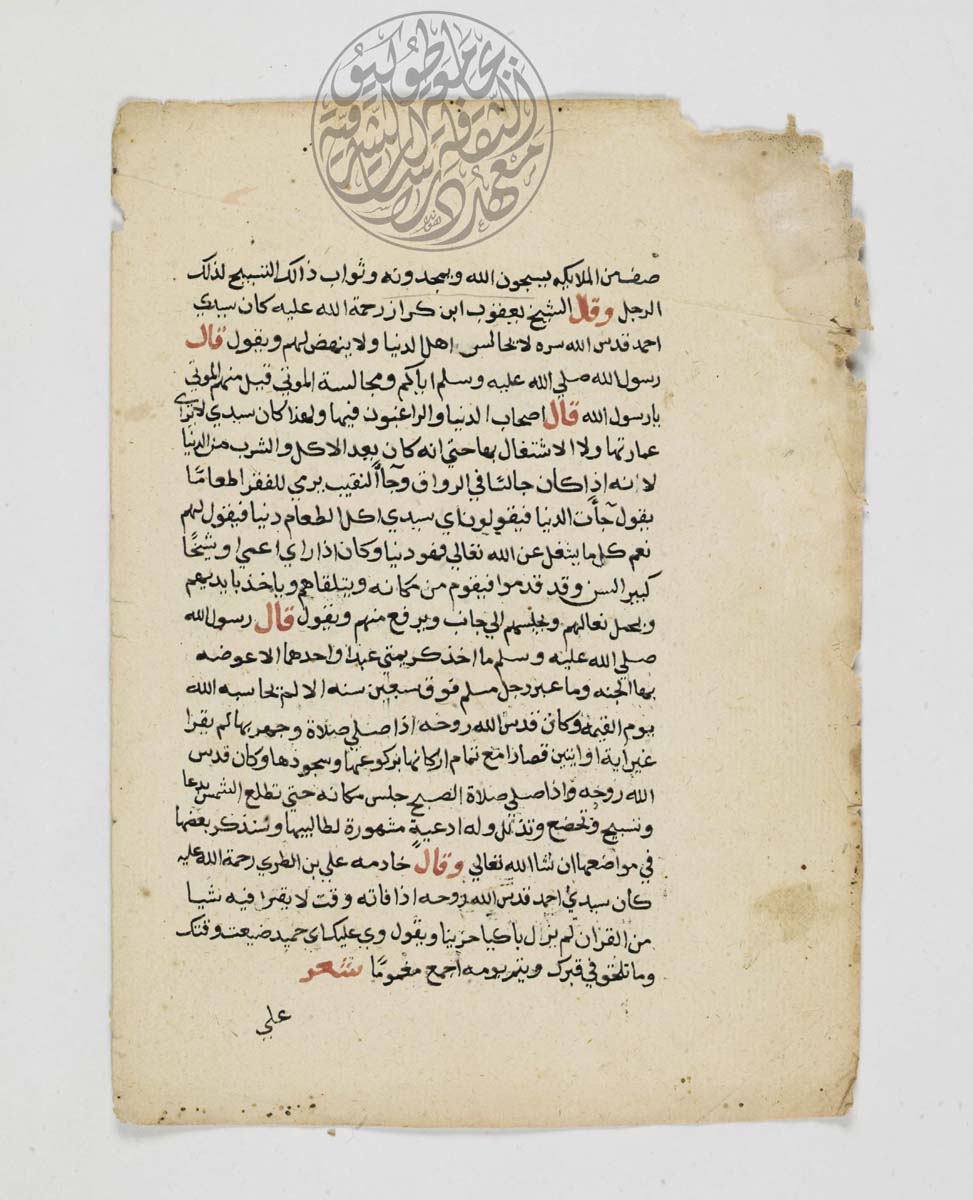 صف من الملايكه يسبحون الله ويمجدونه وثواب ذالك التسبيح لذلك
الرجل وقال الشيخ يعقوب ابن كراز رحمة الله عليه كان سيدي
احمد قدس الله سره لا يجالس اهل الدنيا ولا ينهض لهم ويقول قال
رسول الله صلي الله عليه وسلم اياكم ومجالسة الموتي قيل منهم الموتي
يا رسول الله قال اصحاب الدنيا والراغبون فيها ولهذا كان سيدي لا يراي
عمارتها ولا الاشتغال بها حتي انه كان يعد الاكل والشرب من الدنيا
لانه اذا كان جالسا في الرواق وجاأ النقيب يرمي للفقرا طعامًا
يقول جأت الدنيا فيقولون اي سيدي اكل الطعام دنيا فيقول لهم
نعم كل ما يشغل عن الله تعالي فهو دنيا وكان اذا راي اعمي او شيخًا
كبير السن وقد قدموا فيقوم من مكانه ويتلقاهم وياخذ بايديهم
ويحمل نعالهم ويجلسهم الي جانب ويرفع منهم ويقول قال رسول الله
صلي الله عليه وسلم ما اخذ كريمتي عبدا واحدهما الا عوضه
بها الجنه وما عبر رجل مسلم فوق سبعين سنه الا لم يحاسبه الله
يوم القيمة وكان قدس الله روحه اذا صلي صلاة وجهر بها لم يقرا
غير اية او ايتين قصارا مع تمام اركانها بركوعها وسجودها وكان قدس
الله روحه واذا صلي صلاة الصبح جلس مكانه حتي تطلع الشمس بدعا
وتسبيح وتخضع وتذلل وله ادعية مشهورة لطالبيها وسنذكر بعضها
في مواضعها ان شا الله تعالي وقال خادمه علي بن الطري رحمة الله عليه
كان سيدي احمد قدس الله روحه اذا فاته وقت لا يقرا فيه شيا
من القران لم يزل باكيا حزينا ويقول وي عليك اي حميد ضيعت وقتك
وما تلحقو في قبرك ويتم يومه اجمع مغمومًا شعر
علي